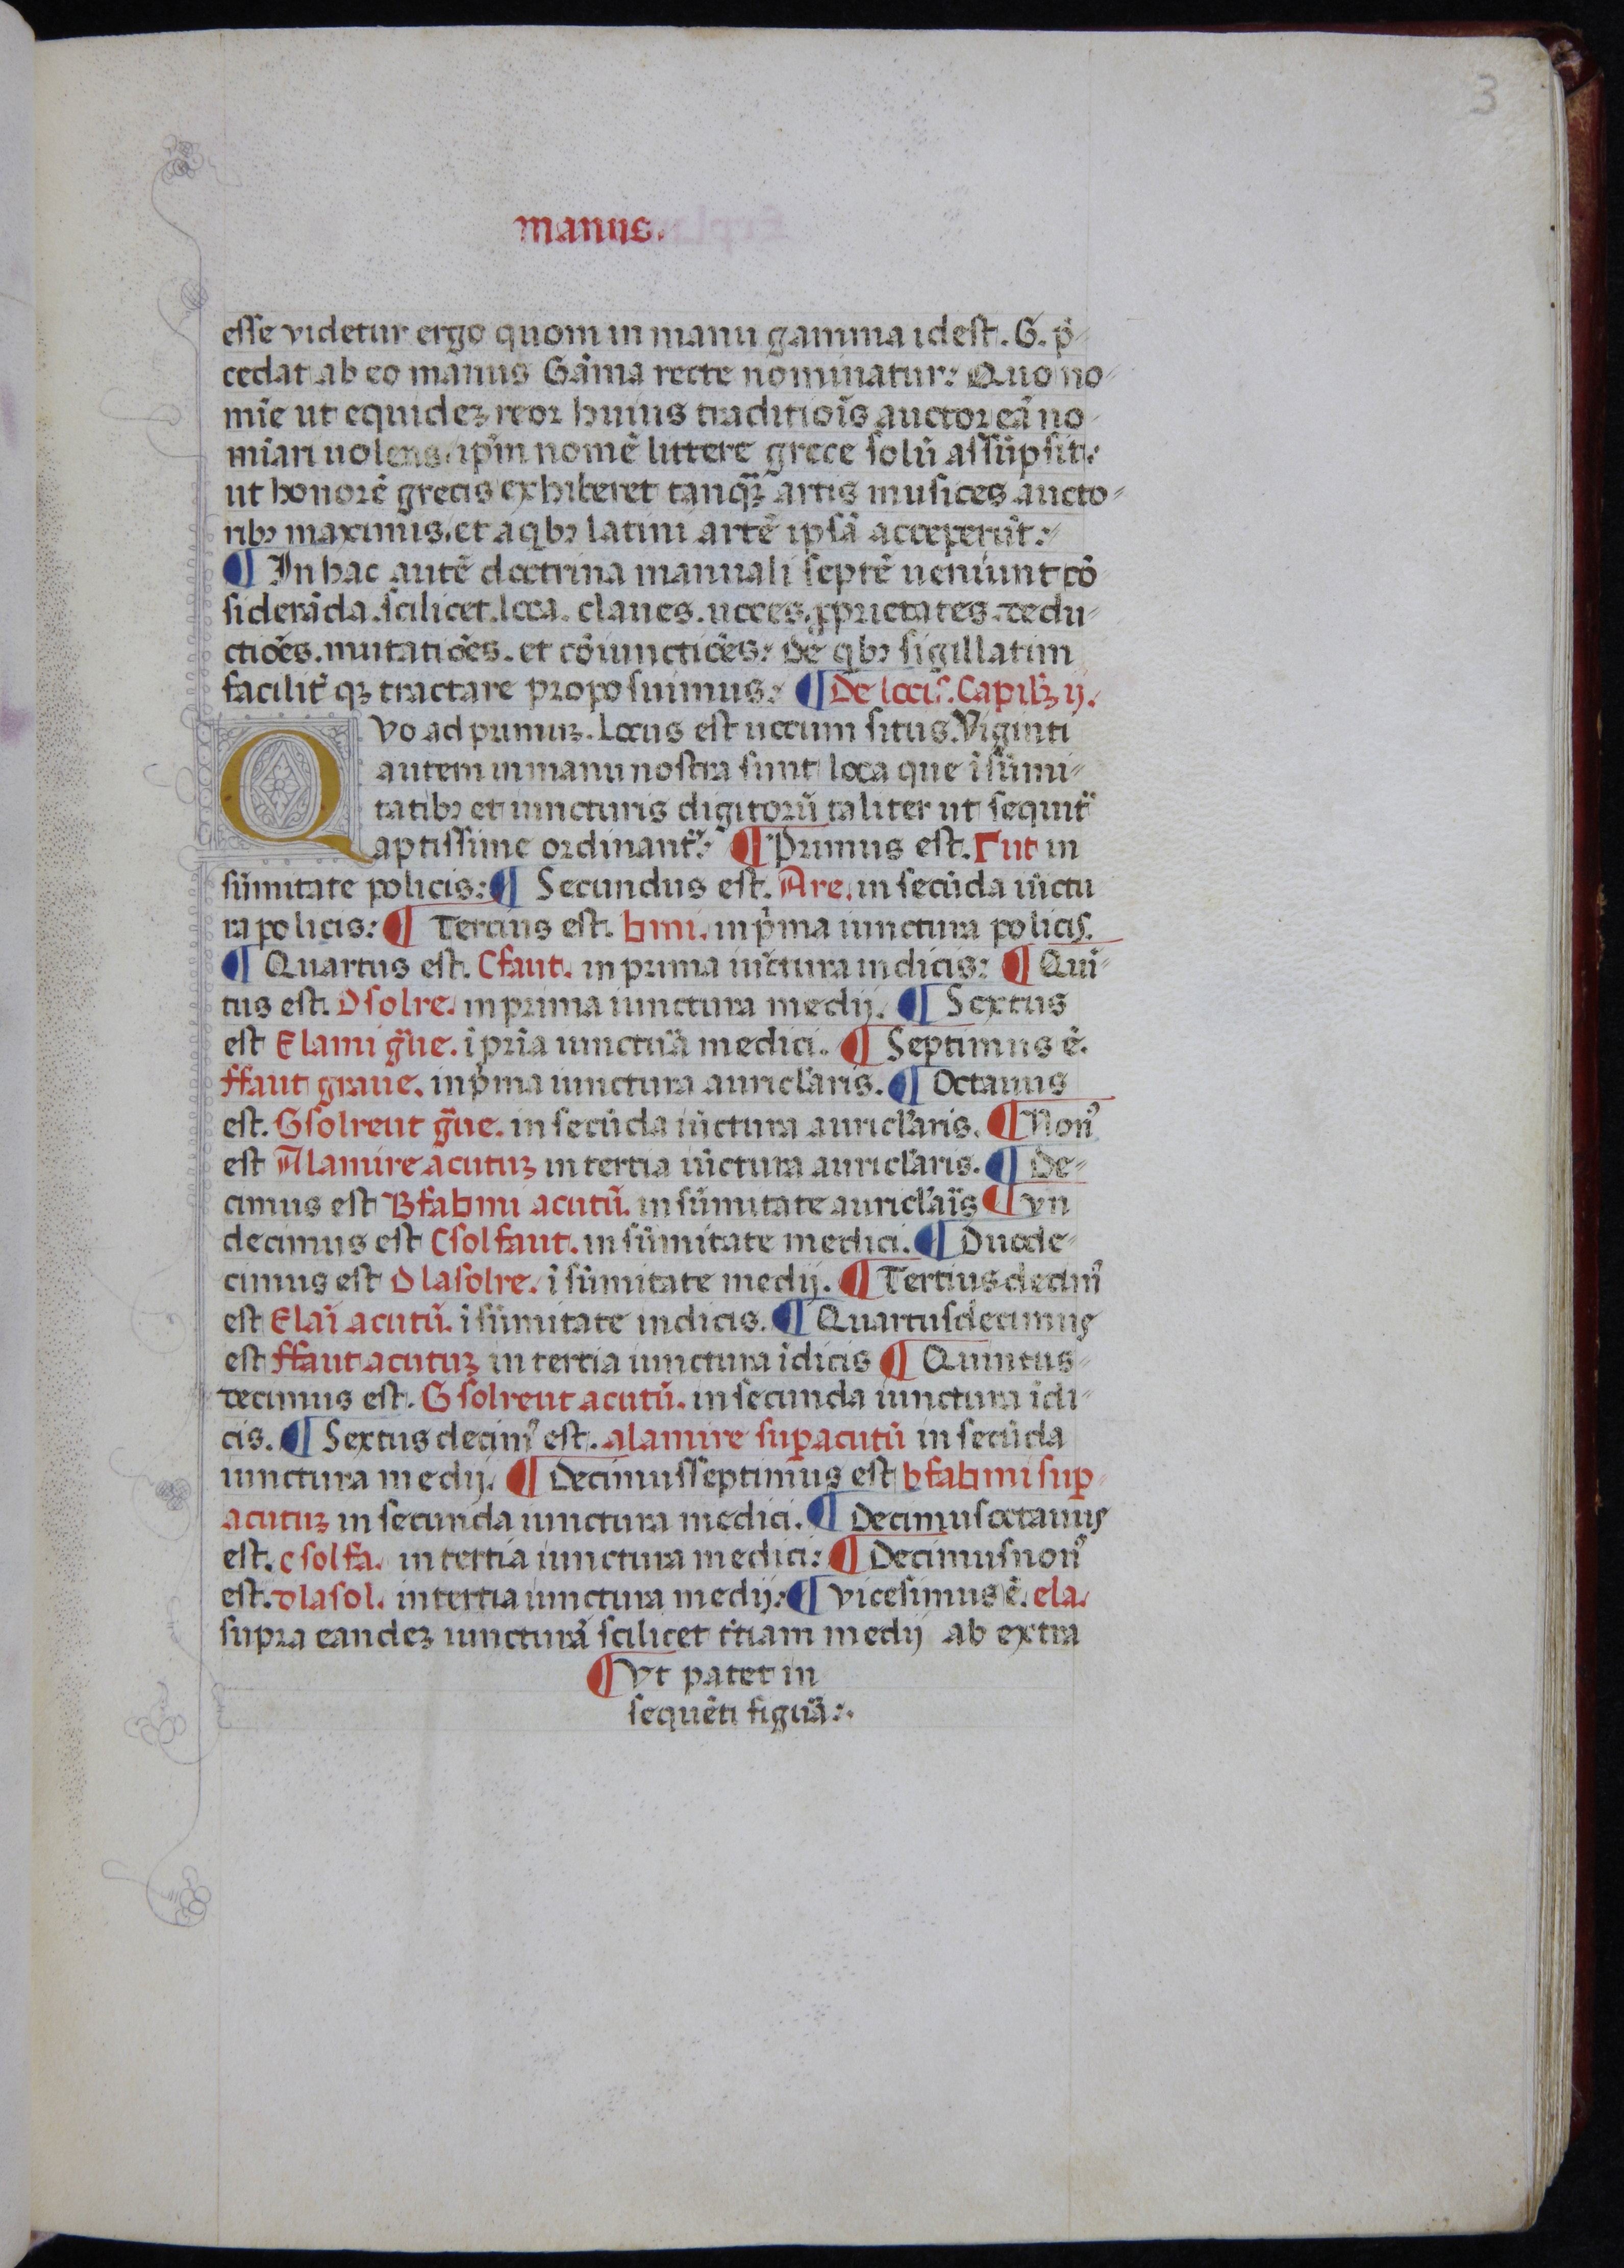 3
manus.
esse videtur ergo quom in manu gamma idest. G. p̄
cedat ab eo manus Gāma recte nominatur: Quo no
mīe ut equideꝫ reor huius traditiōis auctor eā no
miāri uolens ip̄m nomē littere grece solū assūpsit:
ut honorē grecis exhiberet tanqꝫ artis musices aucto
ribꝫ maximis. et a qbꝫ latini artē ipsā acceperūt:
¶ In hac autē doctrina manuali septē ueniunt cō
siderāda. scilicet. loca. claues. uoces. ꝓprietates. dedu
ctiōes. mutatiōes. et cōiunctiōes: De qbꝫ sigillatim
facilit̄ qꝫ tractare proposuimus: ¶ De locis. Capitlꝫ ij.
QVo ad primuꝫ. Locus est uocum situs. Viginti
autem in manu nostra sunt loca que ī sūmi
tatibꝫ et iuncturis digitorū taliter ut sequit̄
aptissime ordinant̄: ¶ Primus est. Γ ut in
sūmitate policis: ¶ Secundus est. Are. in secūda iūctu
ra policis: ¶ Tercius est. ♮mi. in p̄ma iunctura policis.
¶ Quartus est. Cfaut. in prima iūctura indicis: ¶ Quī
tus est. Dsolre. in prima iunctura medij. ¶ Sextus
est Elami ḡue. ī prīa iunctuā medici. ¶ Septimus ē.
ffaut graue. in p̄ma iunctura auricl̄aris. ¶ Octauus
est. Gsolreut ḡue. in secūda iūctura auricl̄aris. ¶ Non⁹
est Alamire acutuꝫ in tertia iūctura auricl̄aris. ¶ De
cimus est Bfa♮mi acutū. in sūmitate auricl̄aīs ¶ Vn
decimus est Csolfaut. in sūmitate medici. ¶ Duode
cimus est Dlasolre. ī sūmitate medij. ¶ Tertiusdecim⁹
est Elaī acutū. ī sūmitate indicis. ¶ Quartusdecimus
est ffaut acutuꝫ in tertia iunctura īdicis ¶ Quintus
decimus est. Gsolreut acutū. in secunda iunctura īdi
cis. ¶ Sextus decim⁹ est. alamire suꝑacutū in secūda
iunctura medij. ¶ Decimusseptimus est bfa♮mi suꝑ
acutuꝫ in secunda iunctura medici. ¶ Decimusoctauus
est. csolfa. in tertia iunctura medici: ¶ Decimusnon⁹
est. dlasol. in tertia iunctura medij: ¶ Vicesimus ē. ela.
supra eandeꝫ iuncturā scilicet t̄tiam medij ab extra
¶ Vt patet in
sequēti figuā:.